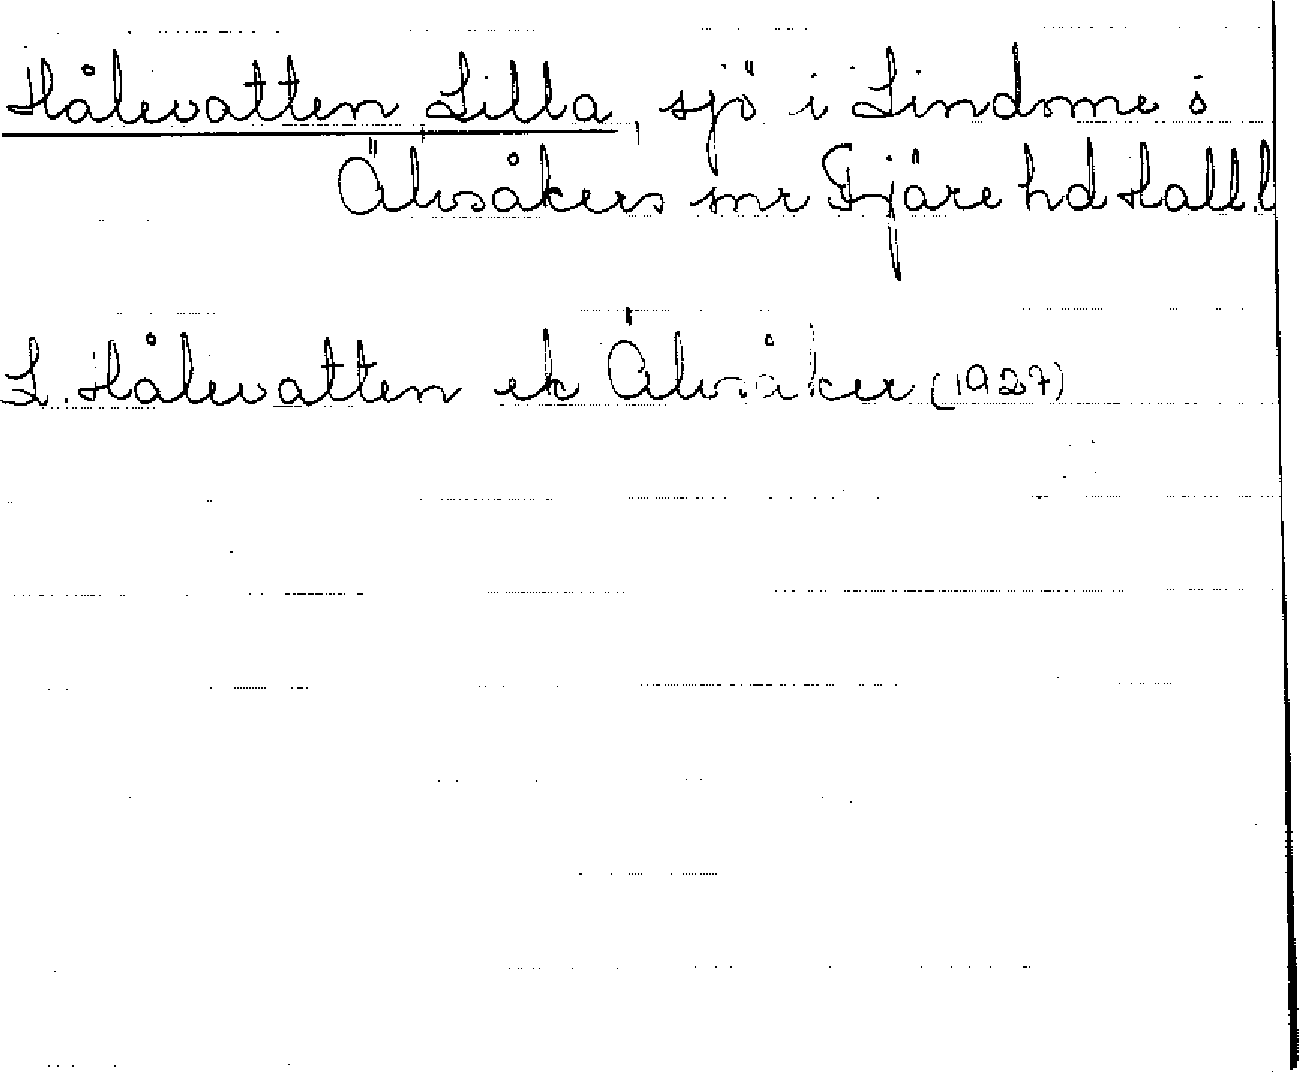 Hålevatten Lilla, sjö i Lindome o
Älvsåkers snr Fjäre hd Hall. l
L. Hålevatten ek Älvsåker (1927)